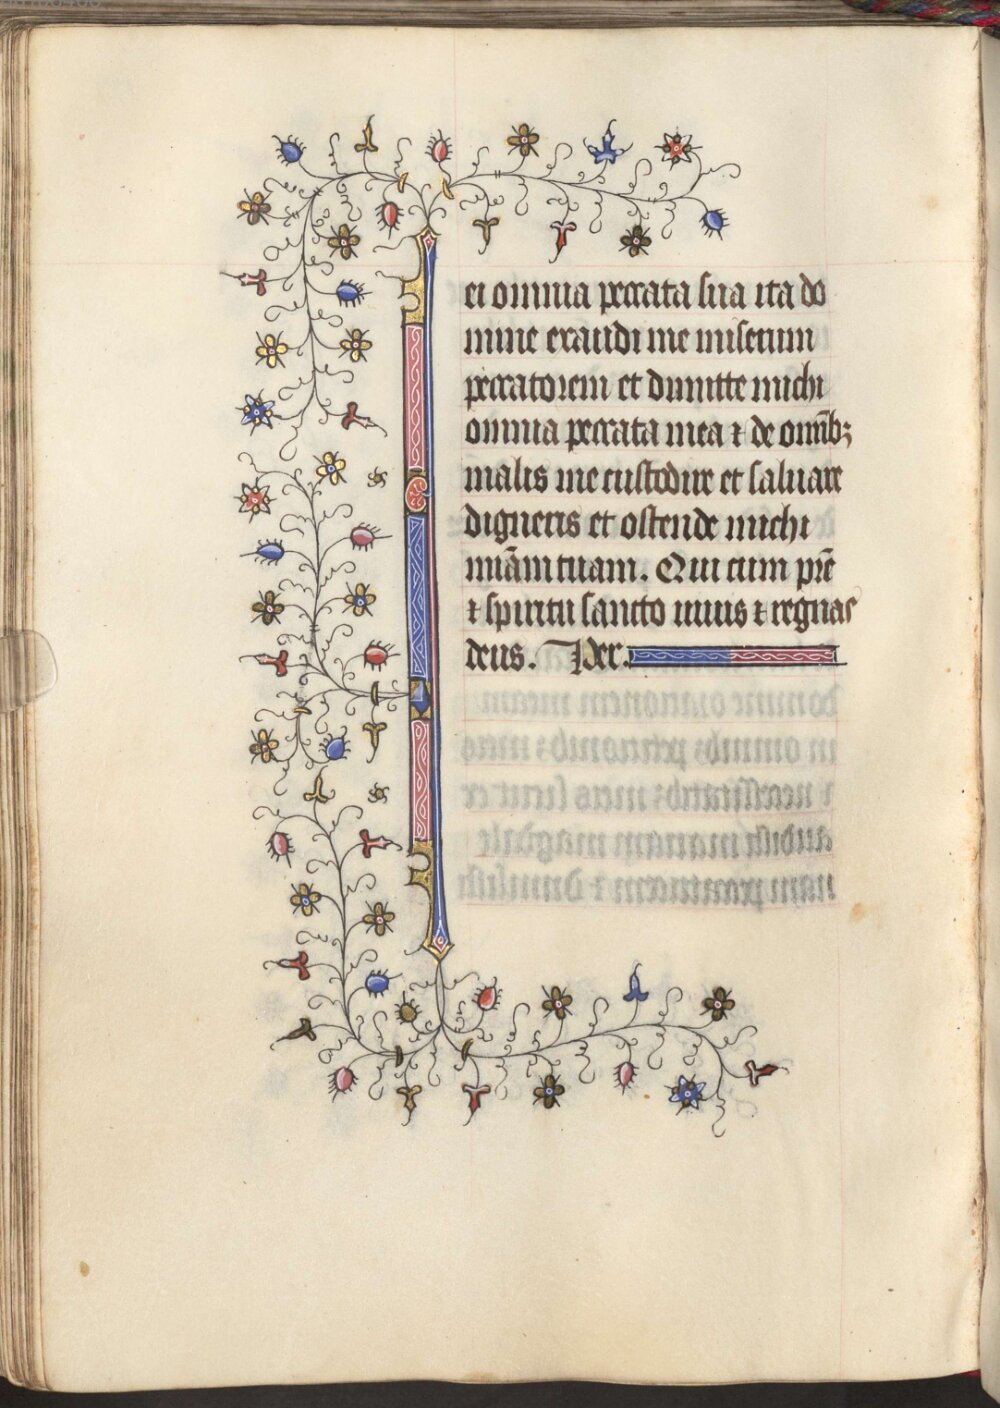 ei omnia peccata sua ita do
mine exaudi me miserum
peccatorem et dimitte michi
omnia peccata mea ⁊ de om̄ibꝫ
malis me custodire et saluare
digneris et ostende michi
mīam tuam. Qui cum pr̄e
⁊ spiritu sancto uiuis ⁊ regnas
deus. Per.